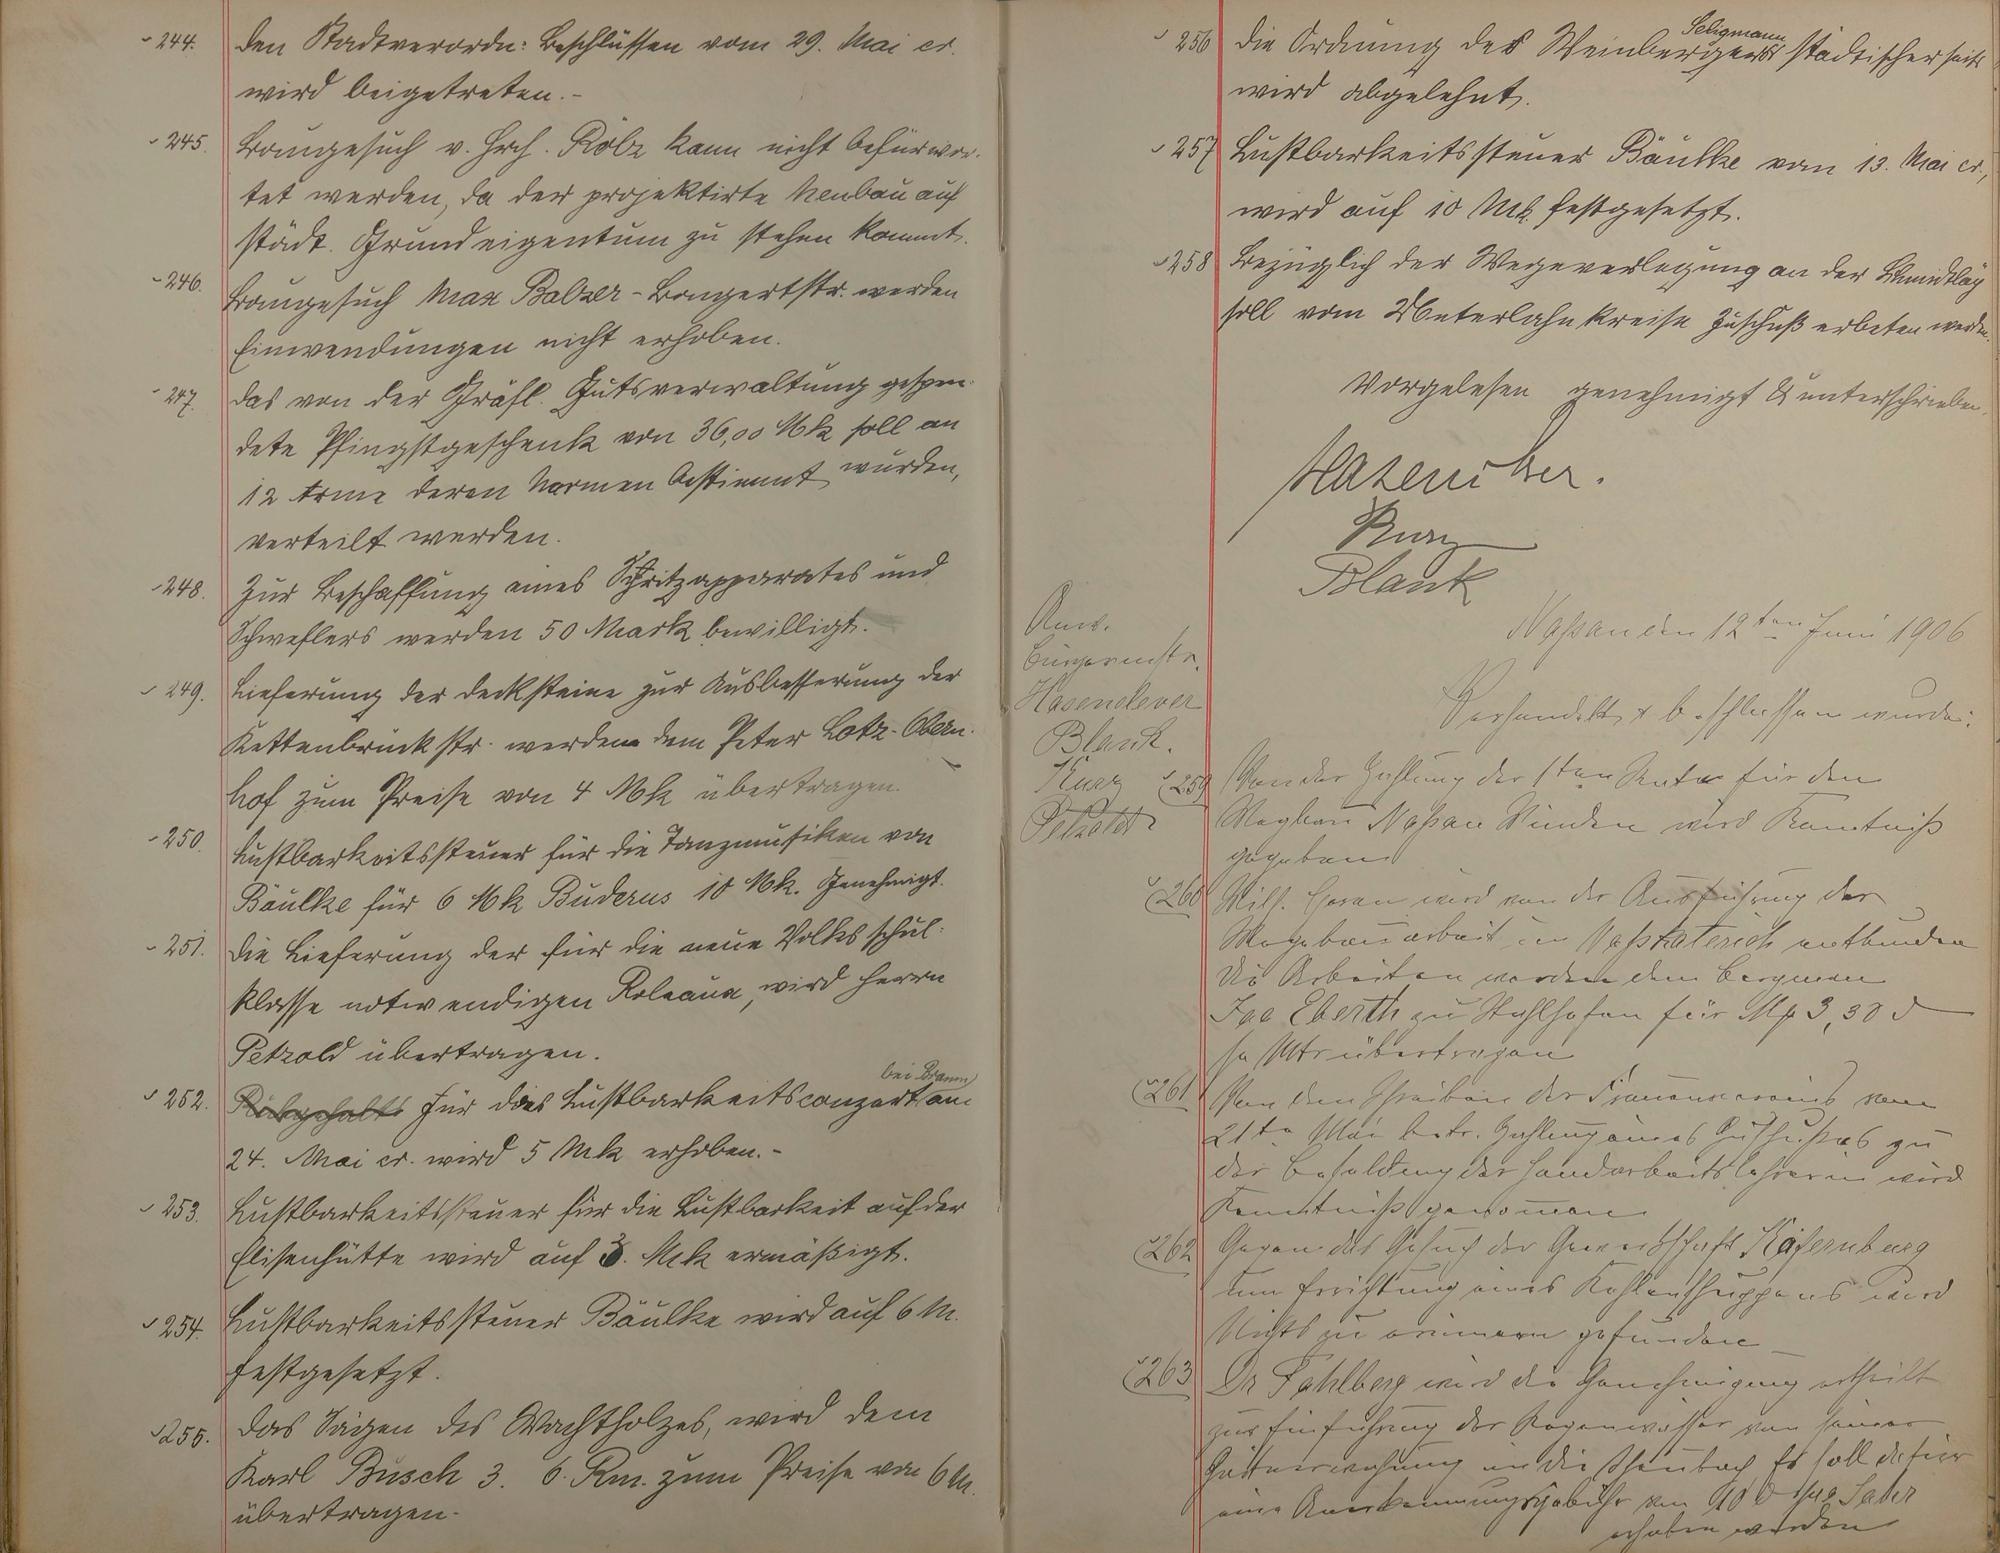 244. Den Stadtverordn: Beschlüssen vom 29. Mai cr.
wird beigetreten.-
245. Baugesuch v. Hrch. Rölz kann nicht befürwor-
tet werden, da der projektirte Neubau auf
städt. Grundeigentum zu stehen kommt.
246. Baugesuch Max Balzer-Bongertstr. werden
Einwendungen nicht erhoben.
247. Das von der Gräfl. Gutsverwaltung gespen-
dete Pfingstgeschenk von 36,00 Mk soll an
12 Arme deren Normen bestimmt wurden,
verteilt werden.
248. Zur Beschaffung eines Spritzapparates und
Schweflers werden 50 Mark bewilligt.
249. Lieferung der Decksteine zur Ausbesserung der
Kettenbrückstr. werden dem Peter Lotz-Obern-
hof zum Preise von 4 Mk übertragen.
250. Lustbarkeitssteuer für die Tanzmusiken von
Bäulke für 6 Mk Buderus 10 Mk. Genehmigt.
251. Die Lieferung der für die neue Volksschul-
klasse notwendigen Roleaux, wird Herrn
Petzold übertragen.
bei Braun
252. für das Lustbarkeitsconzert am
24. Mai cr. wird 5 Mk erhoben.-
253. Lustbarkeitssteuer für die Lustbarkeit auf der
Elisenhütte wird auf 3. Mk ermäßigt.
254. Lustbarkeitssteuer Bäulke wird auf 6 M.
festgesetzt.
255. Das Sägen des Wachtholzes, wird dem
Karl Busch 3. 6. Rm. zum Preise von 6 M.
übertragen.
Seligmann
256 Die Ordnung des Weinberges städtischerseits
wird abgelehnt.
257 Lustbarkeitssteuer Bäulke vom 13. Mai cr.,
wird auf 10 Mk. festgesetzt.
258 Bezüglich der Wegeverlegung an der
soll vom Unterlahnkreise Zuschuß erbeten werden.
Vorgelesen genehmigt & unterschrieben.
Hasenclever.
Kurz
Blank
Nassau den 12ten Juni 1906
Anw.
Bürgermstr.
Hasenclever
Blank.
Kurz
Petzold
Verhandelt & beschlossen wurde:
259 Von der Zahlung der 1ten Rate für den
Wegbau Nassau Winden wird Kenntniß
gegeben
260 Wilh. wird von der Ausführung der
Wegebauarbeit im entbunden
die Arbeiten werden dem Bergmann
Jac Eberth zu Stahlhofen für Mk 3,30 d
pr Mtr übertragen
261 Von dem Schreiben des Frauenvereins vom
21ten Mai betr. Zahlung eines Zuschusses zu
der Besoldung der Handarbeitslehrerin wird
Kenntniß genommen
262 Gegen das Gesuch der Gewerkschaft Käfernburg
um Errichtung eines Kohlenschuppens wird
Nichts zu erinnern gefunden
263 Dr Fahlberg wird die Genehmigung ertheilt
zur Einführung der Regenwasser von seiner
in die Es soll dafür
eine Anerkennungsgebühr von 10 d pro Jahr
erhoben werden